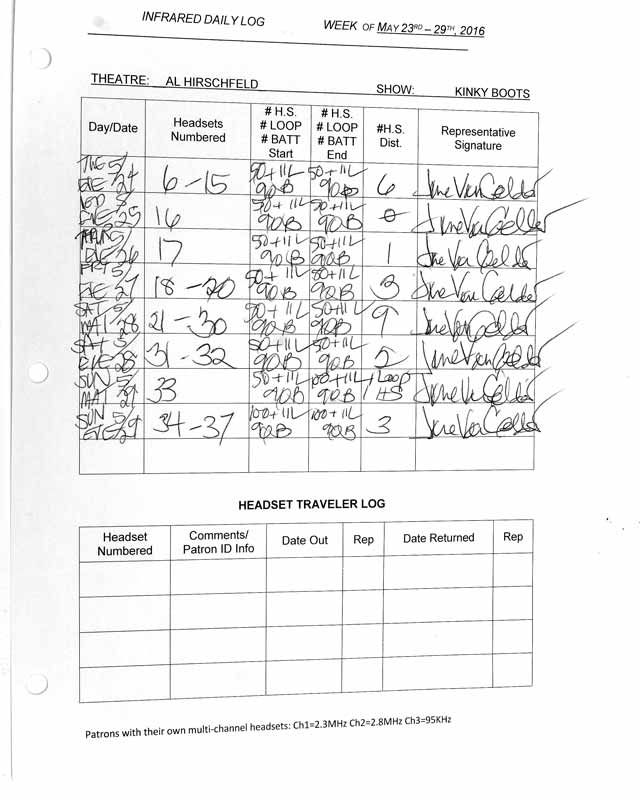 INFRARED DAILY LOG WEEK OF MAY 23RD – 29TH, 2016
THEATRE: AL HIRSCHFELD SHOW: KINKY BOOTS
Day/Date Headsets Numbered # H.S. # LOOP # BATT Start # H.S. # LOOP # BATT End #H.S. Dist. Representative Signature
TUE 5/ EVE 24 6-15 50+11L 90B 50+11L 90B 6
WED 5/ EVE 25 16 50+11L 90B 50+11L 90B 0
THUR 5/ EVE 26 17 50+11L 90B 50+11L 90B 1
FRI 5/ EVE 27 18-20 50+11L 90B 50+11L 90B 3
SAT 5/ MAT 28 21-30 50+11L 90B 50+11L 90B 9
SAT 5/ EVE 28 31-32 50+11L 90B 50+11L 90B
SUN 5/ MAT 29 33 50+11L 90B 100+11L 90B 1 Loop HS
SUN 5/ EVE 29 34-37 100+11L 90B 100+11L 90B 3
HEADSET TRAVELER LOG
Headset Numbered Comments/ Patron ID Info Date Out Rep Date Returned Rep
Patrons with their own multi-channel headsets: Ch1=2.3MHz Ch2=2.8MHz Ch3=95KHz